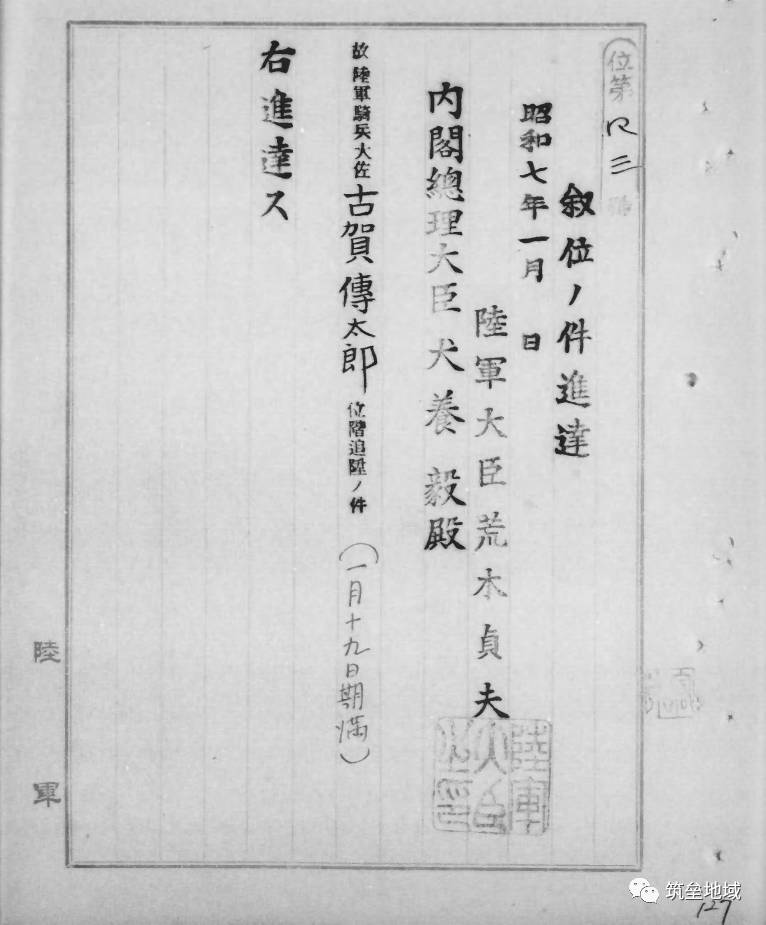 位第 三號
敍位ノ件進達
昭和七年一月 日
陸軍大臣荒木貞夫
陸軍大臣之印
内閣總理大臣犬養毅殿
故陸軍騎兵大佐古賀傳太郎位階追陞ノ件(一月十九日期満)
右進達ス
陸軍
筑垒地域
127